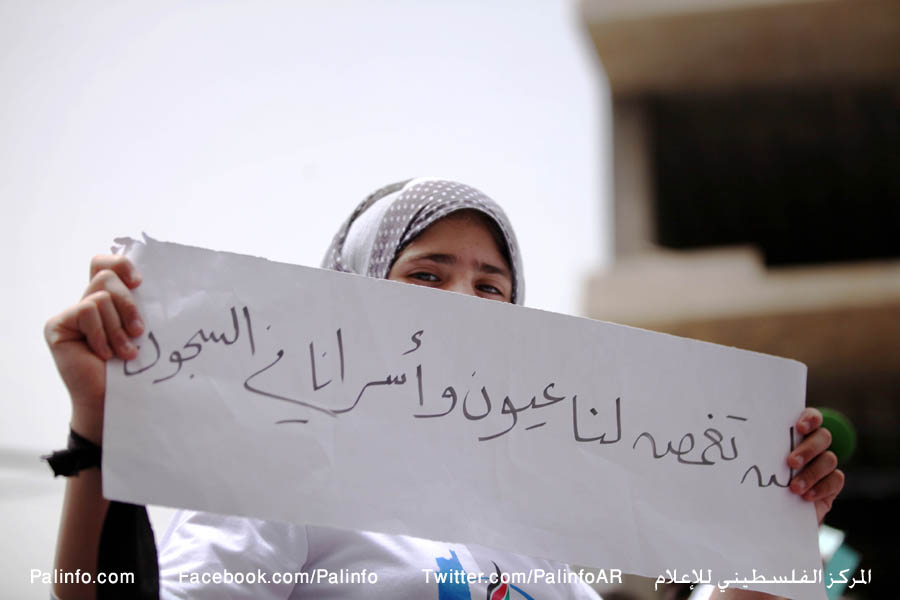 لن تغمض لنا عيون وأسرانا في السجون
Palinfo.com Facebook.com/Palinfo Twitter.com/PalinfoAR المركز الفلسطيني للإعلام